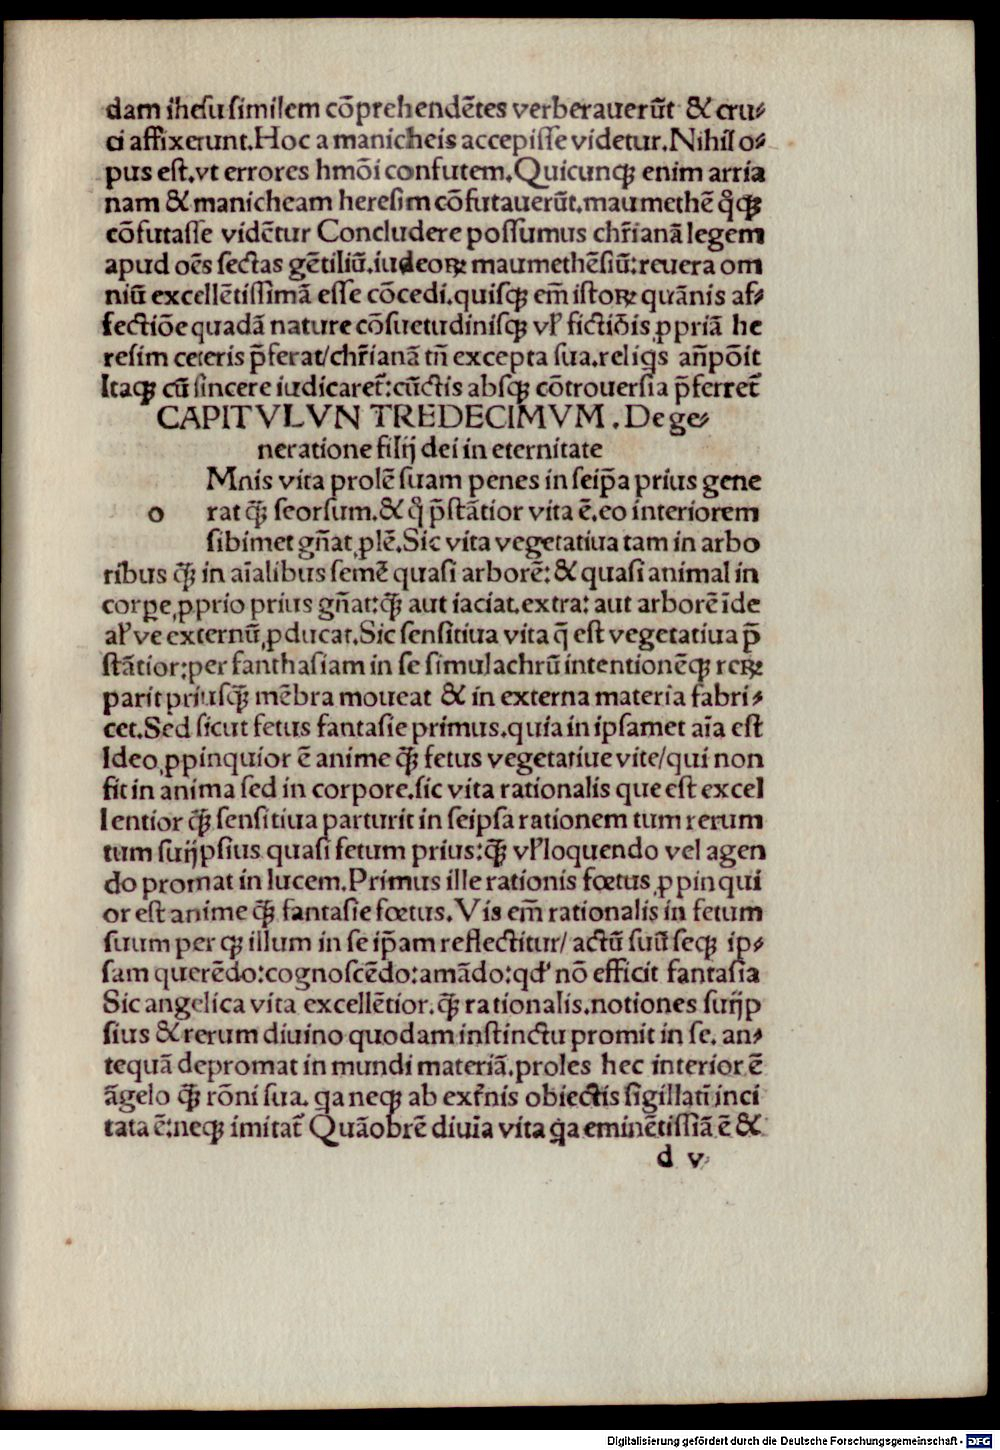 dam ihesu similem cōprehendētes verberauerūt & cru⸗
ci affixerunt. Hoc a manicheis accepisse videtur. Nihil o⸗
pus est. vt errores hmōi confutem. Quicunqꝫ enim arria
nam & manicheam heresim cōfutauerūt. maumethē qͦqꝫ
cōfutasse vidētur Concludere possumus chr̄ianā legem
apud oēs sectas gētiliū. iudeoꝝ maumethēsiū: reuera om
niū excellētissimā esse cōcedi. quisqꝫ em̄ istoꝝ quānis af⸗
fectiōe quadā nature cōsuetudinisqꝫ vl̓ fictiōis ꝓpriā he
resim ceteris p̄ferat/chr̄ianā tn̄ excepta sua. religs an̄pōit
Itaqꝫ cū sincere iudicaret̄: cūctis absqꝫ cōtrouersia p̄ferret̄
CAPITVLVN TREDECIMVM. De ge⸗
neratione filij dei in eternitate
Mnis vita prolē suam penes in seip̄a prius gene
o rat qꝫ̄ seorsum. & qͦ p̄stātior vita ē. eo interiorem
sibimet gn̄at ꝓlē. Sic vita vegetatiua tam in arbo
ribus qꝫ̄ in aīalibus semē quasi arborē: & quasi animal in
corpe ꝓprio prius gn̄at: qꝫ̄ aut iaciat. extra: aut arborē īde
al̓ ve externū ꝓducat. Sic sensitiua vita q̄ est vegetatiua p̄
stātior: per fanthasiam in se simulachrū intentionēqꝫ reꝝ
parit priusqꝫ̄ mēbra moueat & in externa materia fabri⸗
cet. Sed sicut fetus fantasie primus. quia in ipsamet aīa est
Ideo ꝓpinquior ē anime qꝫ̄ fetus vegetatiue vite/qui non
fit in anima sed in corpore. sic vita rationalis que est excel
lentior qꝫ̄ sensitiua parturit in seipsa rationem tum rerum
tum suijpsius quasi fetum prius: qꝫ̄ vl̓ loquendo vel agen
do promat in lucem. Primus ille rationis fœtus ꝓpinqui
or est anime qꝫ̄ fantasie fœtus. Vis em̄ rationalis in fetum
suum per qꝫ illum in se ip̄am reflectitur/ actū suū seqꝫ ip⸗
sam querēdo: cognoscēdo: amādo: qd̓ nō efficit fantasia
Sic angelica vita excellētior. qꝫ̄ rationalis. notiones suijp
sius & rerum diuino quodam instinctu promit in se. an⸗
tequā depromat in mundi materiā. proles hec interior ē
āgelo qꝫ̄ rōni sua. qa neqꝫ ab ext̄nis obiectis sigillatī inci
tata ē: neqꝫ imitat̄ Quāobrē diuīa vita qa eminētissīa ē &
d v
Digitalisierung gefördert durch die Deutsche Forschungsgemeinschaft - DFG